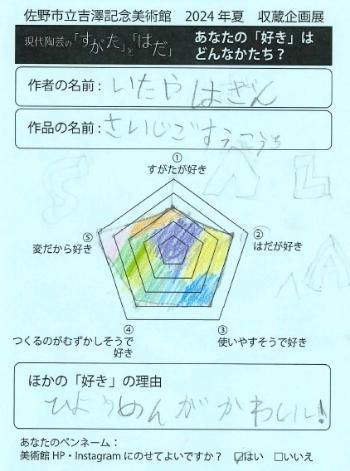 佐野市立吉澤記念美術館　2024年夏　収蔵企画展
現代陶芸の「すがた」と「はだ」
あなたの「好き」は
どんなかたち？
作者の名前：いたやはざん
作品の名前：さいじごすう
①
すがたが好き
⑤
変だから好き
②
はだが好き
④
つくるのがむずかしそうで
好き
③
使いやすそうで好き
ほかの「好き」の理由
ひょうめんがかわいい!
あなたのペンネーム：
美術館HP・Instagramにのせてよいですか？ ☑はい □いいえ